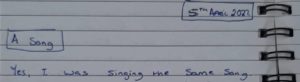 5TH April 2022
A Song
Yes, I was singing the same song